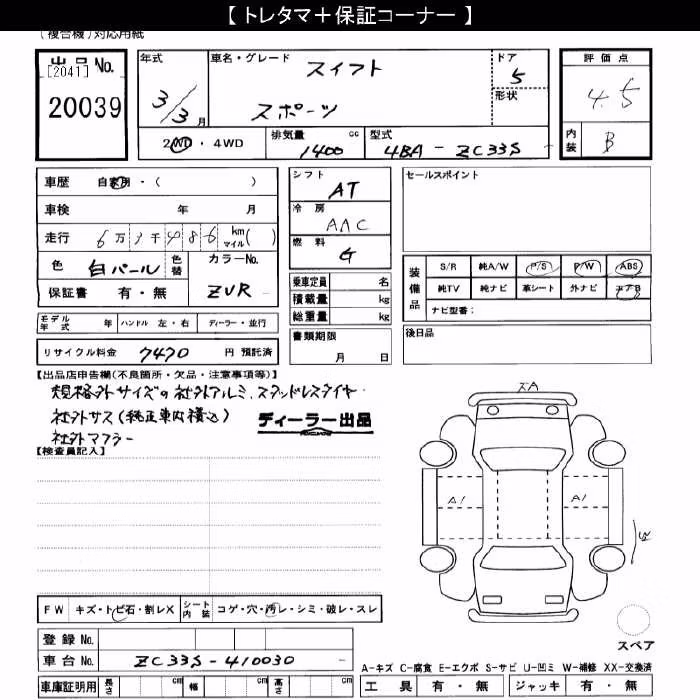 【 トレタマ＋保証コーナー 】
(複合機)対応用紙
出品 No.
[2041]
20039
年式
3/3月
車名・グレード
スイフト
スポーツ
ドア
5
形状
評価点
4.5
内装
B
2WD ・ 4WD
排気量 cc
1400
型式
4BA - ZC33S
車歴 自家用 ・( )
車検 年 月
走行 6万 3千 9 8 6 km マイル ( )
色 白パール 色替
カラーNo.
ZVR
保証書 有・無
モデル年式 年 ハンドル 左・右 ディーラー・並行
リサイクル料金 7470 円 預託済
シフト
AT
冷房
AAC
燃料
G
乗車定員 名
積載量 kg
総重量 kg
書類期限
月 日
セールスポイント
装備品
S/R 純A/W P/S P/W ABS
純TV 純ナビ 革シート 外ナビ エアB
ナビ型番：
後日品
【出品店申告欄(不良箇所・欠品・注意事項等)】
規格外サイズの社外アルミ、スタッドレスタイヤ
社外サス(純正車内積込)
社外マフラー
ディーラー出品
【検査員記入】
A1
A1
FW キズ・トビ石・割レX
シート内装 コゲ・穴・汚レ・シミ・破レ・スレ
スペア
登録 No.
車台 No. ZC33S-410030
A-キズ C-腐食 E-エクボ S-サビ U-凹ミ W-補修 XX-交換済
車庫証明用 長さ cm 幅 cm 高さ cm
工具 有・無 ジャッキ 有・無